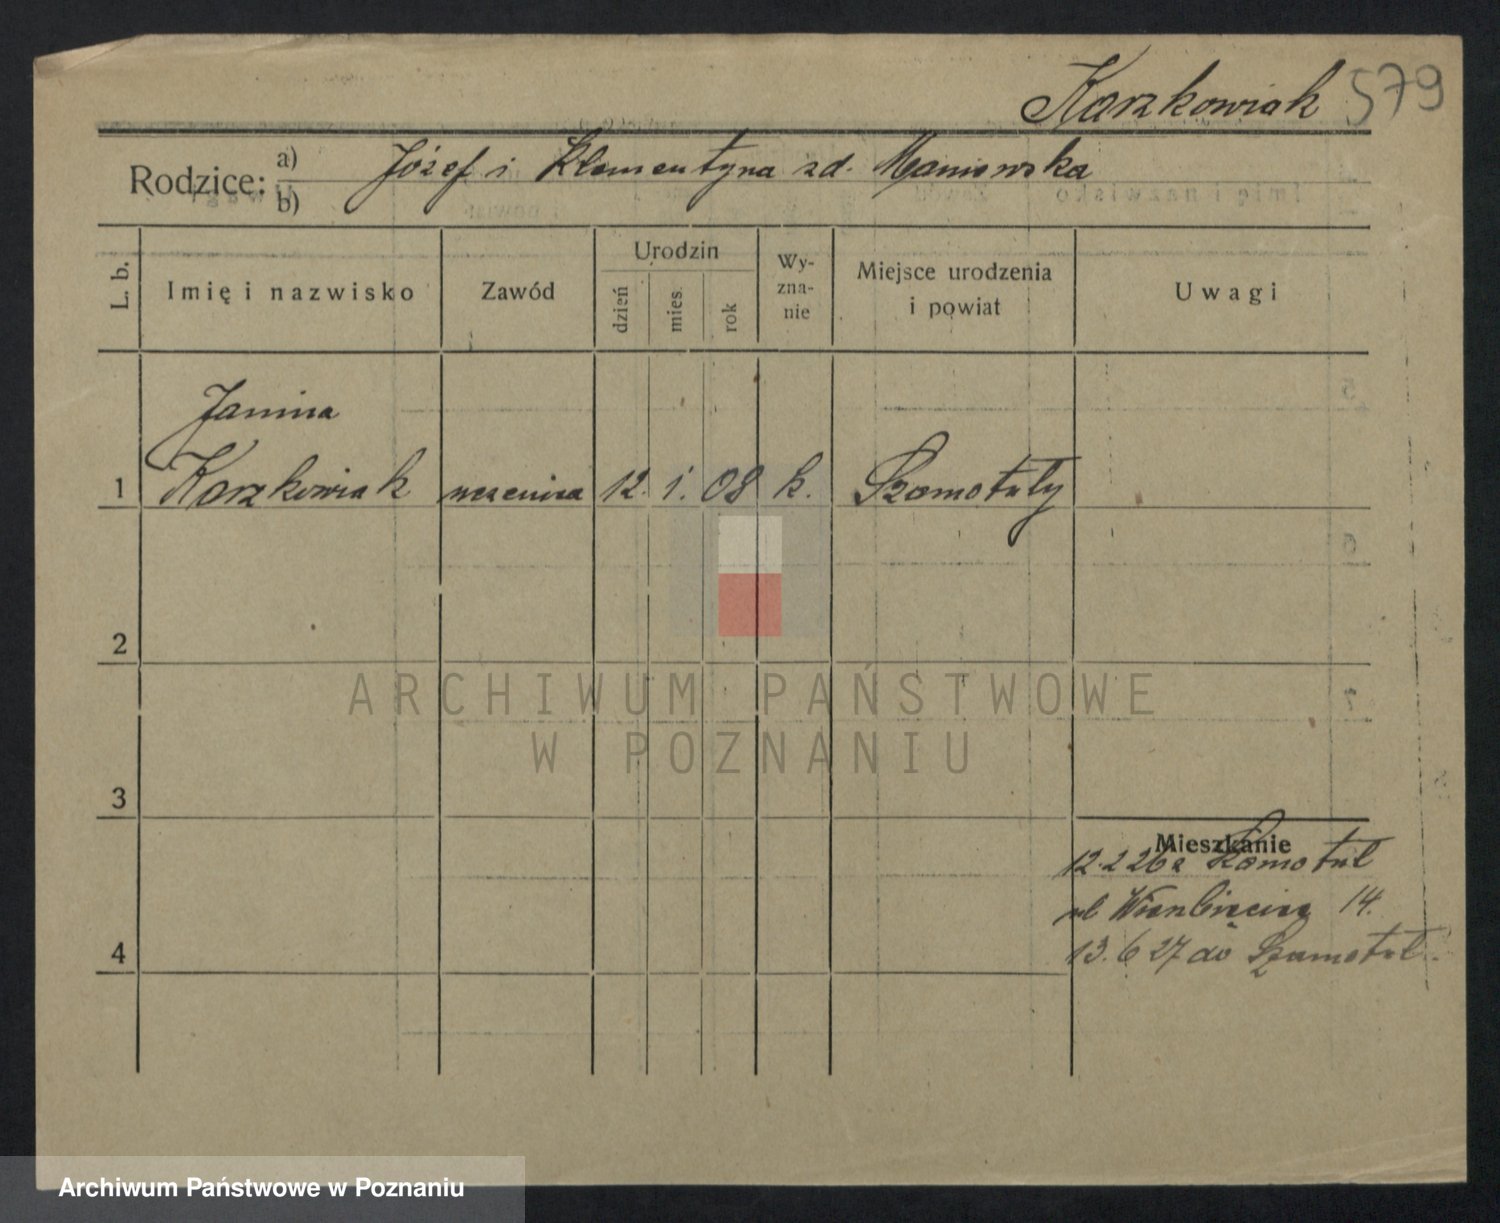 Karzkowiak 579
Rodzice: a) Józef i Klementyna zd. Maniewska
b)
L. b.
Imię i nazwisko
Zawód
Urodzin
dzień
mies.
rok
Wy-
zna-
nie
Miejsce urodzenia
i powiat
Uwagi
Janina
1 Karzkowiak uczenica 12. 1. 08 k. Szamotuły
2
ARCHIWUM PAŃSTWOWE
W POZNANIU
3
Mieszkanie
12.2 26 z Szamotuł
ul 14.
4
13. 6 27 do Szamotuł.
Archiwum Państwowe w Poznaniu